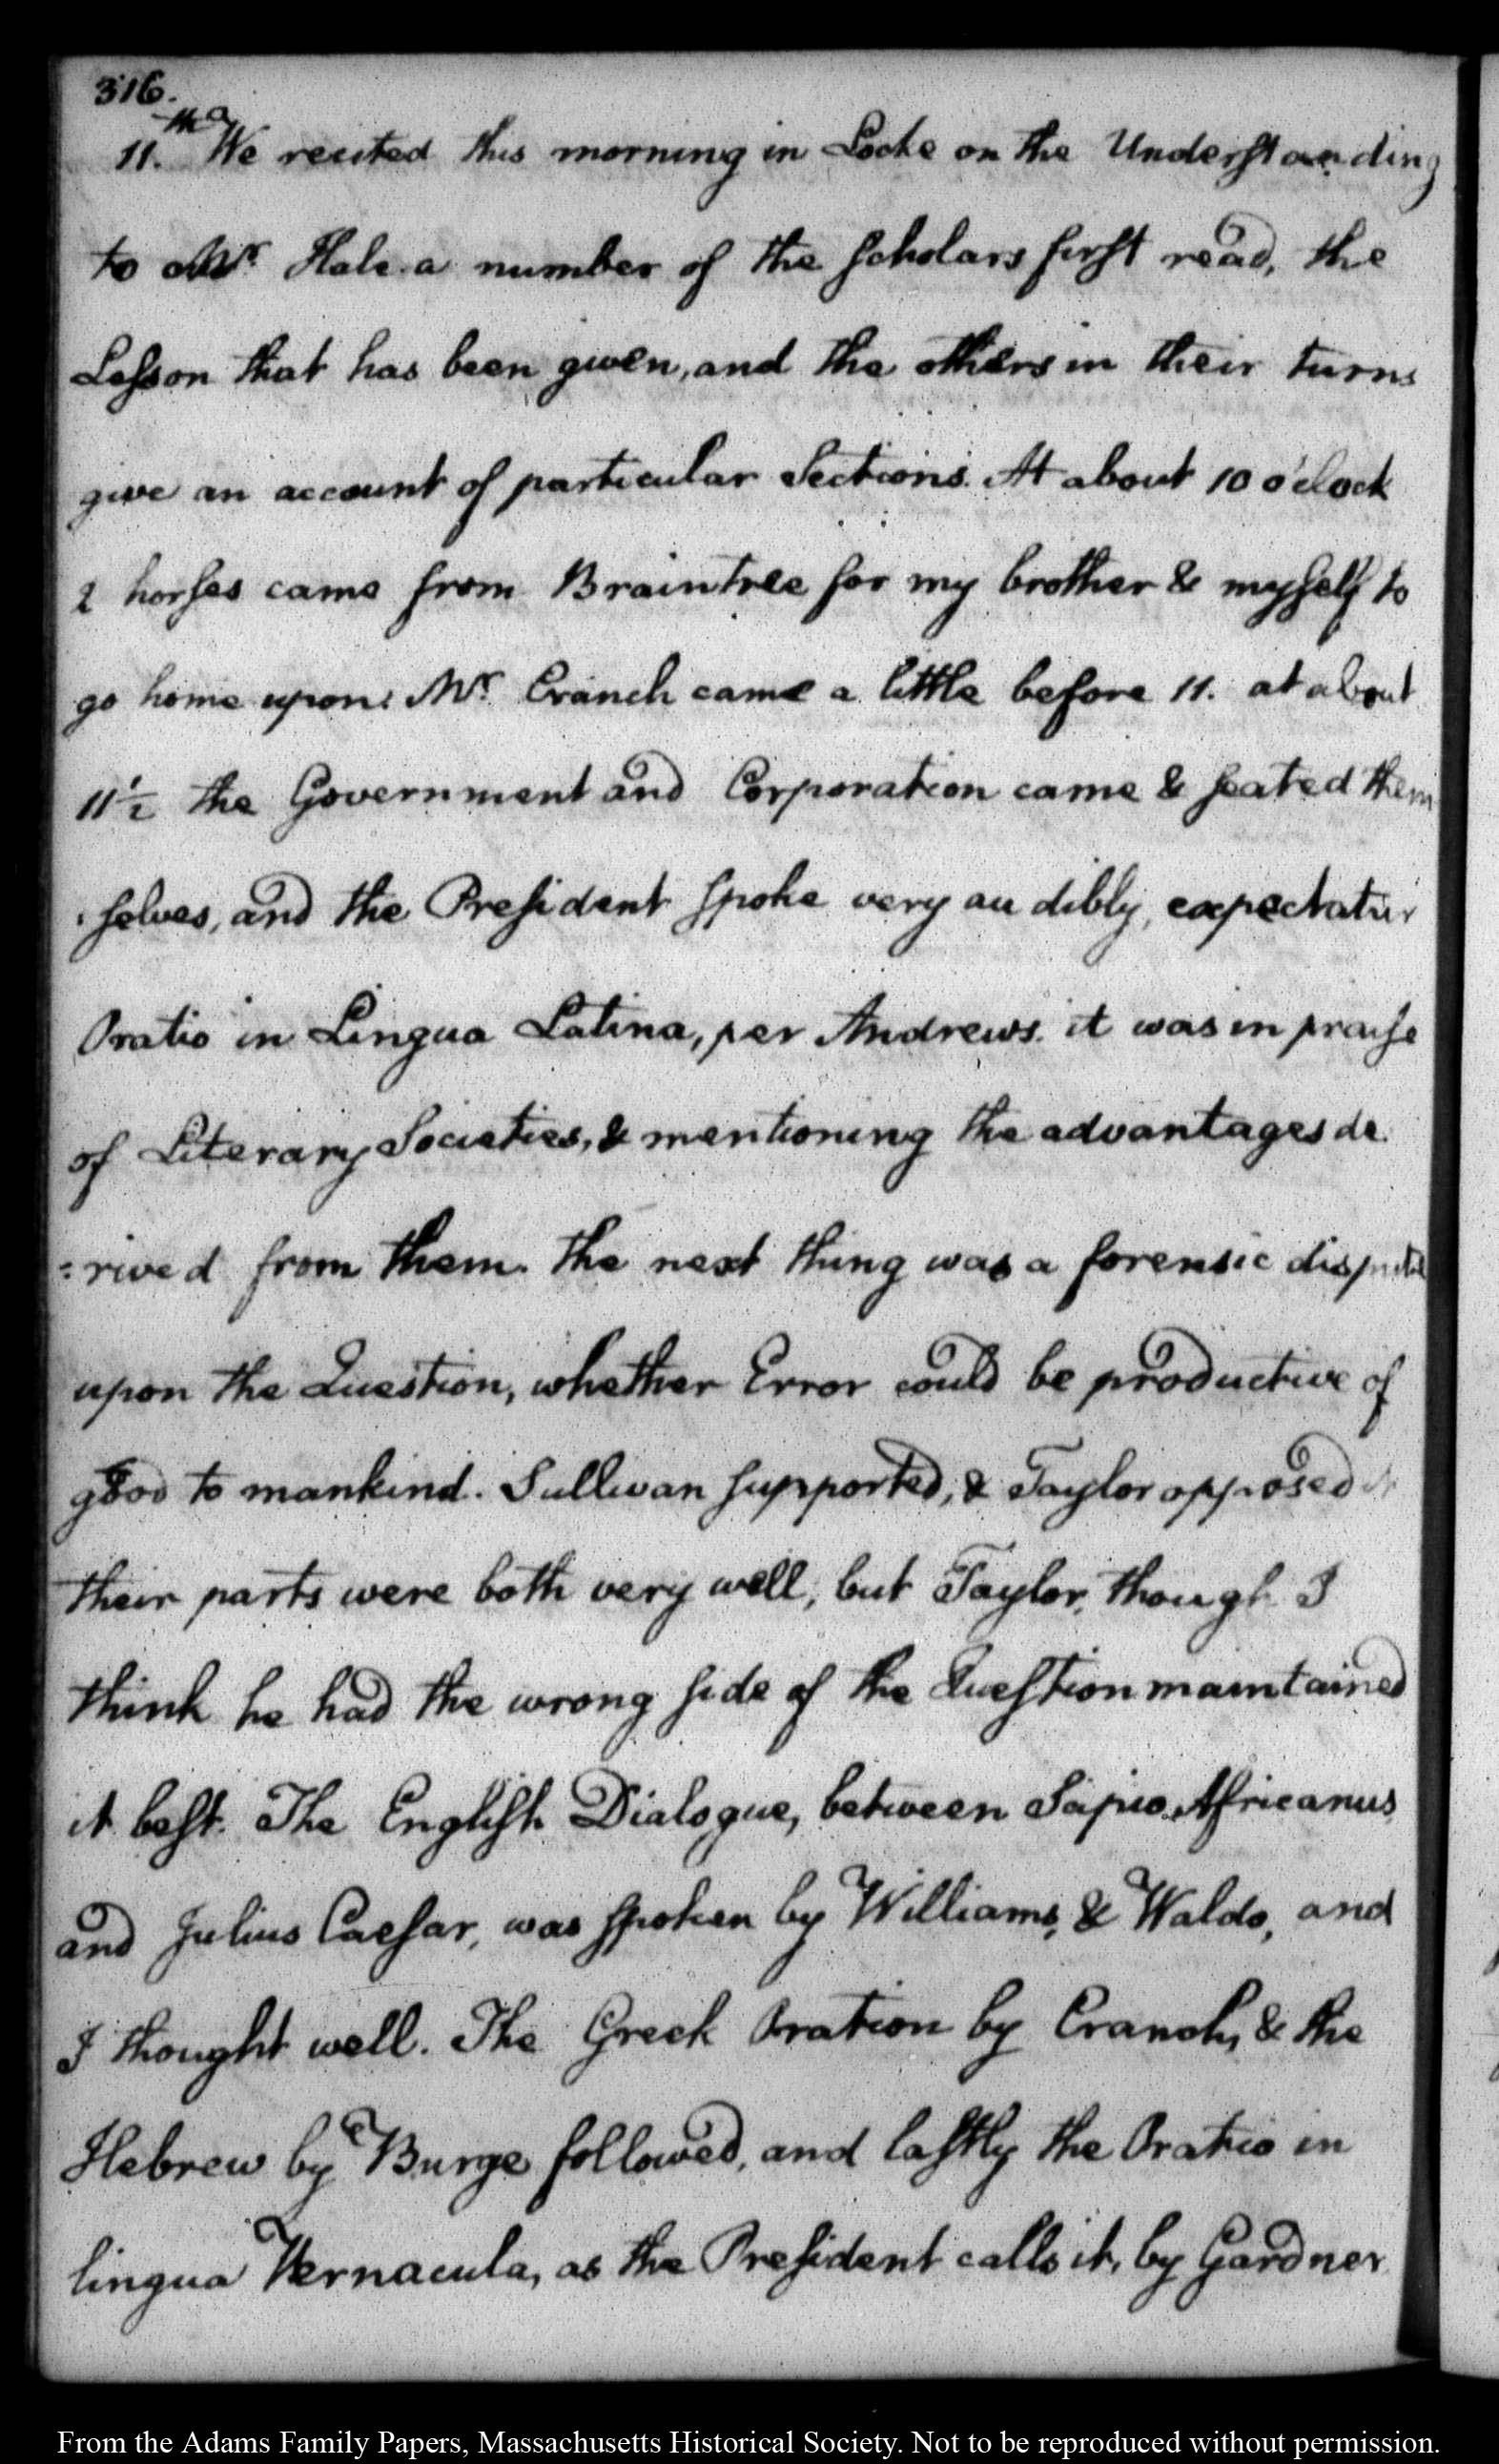 316.
11.th We recited this morning in Locke on the Understanding
to Mr Hale a number of the scholars first read, the
Lesson that has been given, and the others in their turns
give an account of particular Sections. At about 10 o'clock
2 horses came from Braintree for my brother & myself to
go home upon: Mr Cranch came a little before 11. at about
11 1/2 the Government and Corporation came & seated them
: selves, and the President spoke very audibly, expectatur
Oratio in Lingua Latina, per Andrews. it was in praise
of Literary Societies, & mentioning the advantages de
: rived from them. the next thing was a forensic disputa
upon the Question, whether Error could be productive of
good to mankind. Sullivan supported, & Taylor opposed it
their parts were both very well, but Taylor, though I
think he had the wrong side of the Question maintained
it best. The English Dialogue, between Scipio Africanus
and Julius Caesar, was spoken by Williams, & Waldo, and
I thought well. The Greek Oration by Cranch, & the
Hebrew by Burge followed, and lastly the Oratio in
lingua Vernacula, as the President calls it, by Gardner
From the Adams Family Papers, Massachusetts Historical Society. Not to be reproduced without permission.